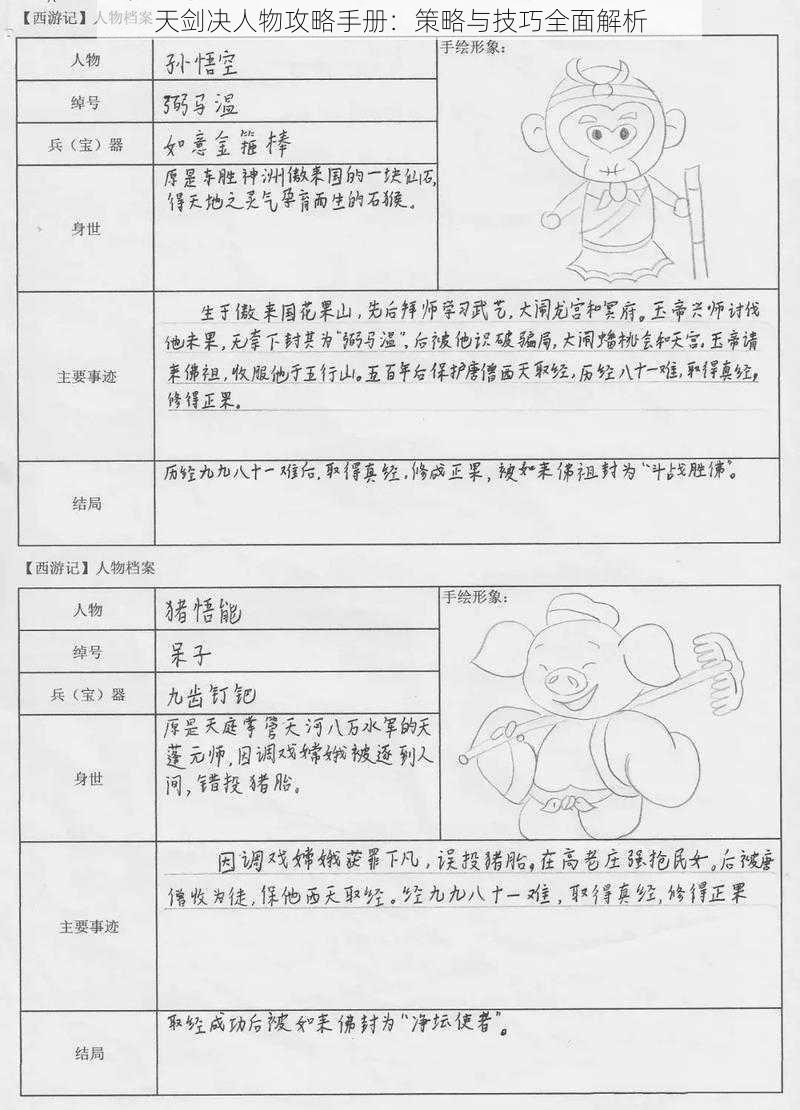 天剑决人物攻略手册：策略与技巧全面解析
【西游记】人物档案
人物
孙悟空
手绘形象：
绰号
弼马温
兵（宝）器
如意金箍棒
身世
原是东胜神洲傲来国的一块仙石，
得天地之灵气孕育而生的石猴。
主要事迹
生于傲来国花果山，先后拜师学习武艺，大闹龙宫和冥府。玉帝兴师讨伐
他未果，无奈下封其为“弼马温”，后被他识破骗局，大闹蟠桃会和天宫。玉帝请
来佛祖，收服他于五行山。五百年后保护唐僧西天取经，历经八十一难，取得真经，
修得正果。
结局
历经九九八十一难后，取得真经，修成正果，被如来佛祖封为“斗战胜佛”。
【西游记】人物档案
人物
猪悟能
手绘形象：
绰号
呆子
兵（宝）器
九齿钉钯
身世
原是天庭掌管天河八万水军的天
蓬元师，因调戏嫦娥被逐到人
间，错投猪胎。
主要事迹
因调戏嫦娥获罪下凡，误投猪胎。在高老庄强抢民女。后被唐
僧收为徒，保他西天取经。经九九八十一难，取得真经，修得正果
结局
取经成功后被如来佛封为“净坛使者”。